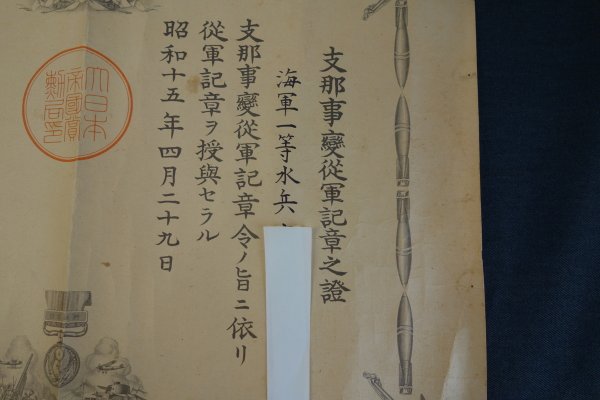 支那事變從軍記章之證
海軍一等水兵
支那事變從軍記章令ノ旨ニ依リ
從軍記章ヲ授與セラル
昭和十五年四月二十九日
大日本
帝國賞
勲局印